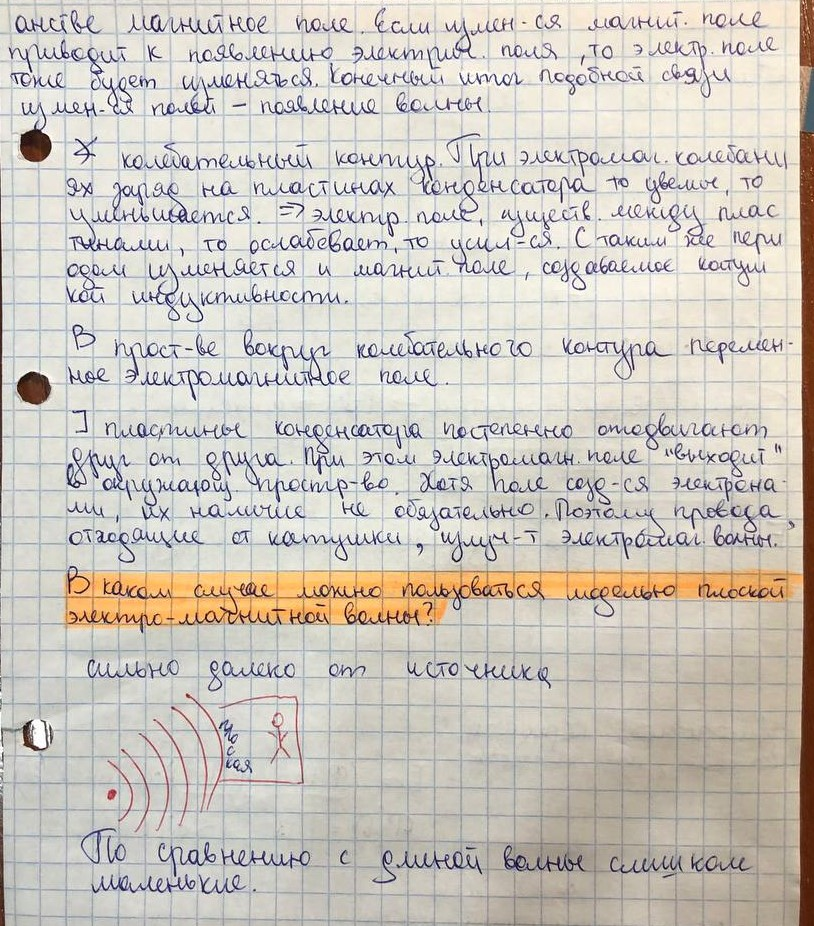 анстве магнитное поле. Если измен-ся магнит. поле
приводит к появлению электрич. поля, то электр. поле
тоже будет изменяться. Конечный итог подобной связи
измен-ся полей – появление волны.
колебательный контур. При электромаг. колебани
ях заряд на пластинах конденсатора то увелич, то
уменьшается. => электр. поле, существ. между плас
тинами, то ослабевает, то усил-ся. С таким же пери
одом изменяется и магнит. поле, создаваемое катуш
кой индуктивности.
В прост-ве вокруг колебательного контура перемен-
ное электромагнитное поле.
] пластины конденсатора постепенно отодвигают
друг от друга. При этом электромагн. поле "выходит"
в окружающ простр-во. Хотя поле созд-ся электрона-
ми, их наличие не обязательно. Поэтому провода,
отходящие от катушки, излуч-т электромаг. волны.
В каком случае можно пользоваться моделью плоской
электро-магнитной волны?
сильно далеко от источника
плос
кая
По сравнению с длиной волны слишком
маленькие.